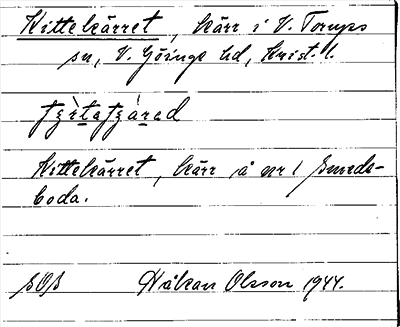 Kittekärret, kärr i V. Torups
sn, V. Göinge hd, Krist. l.
Kittekärret, kärr å nr 1 Smeds-
boda.
SOS Håkan Olsson 1944.